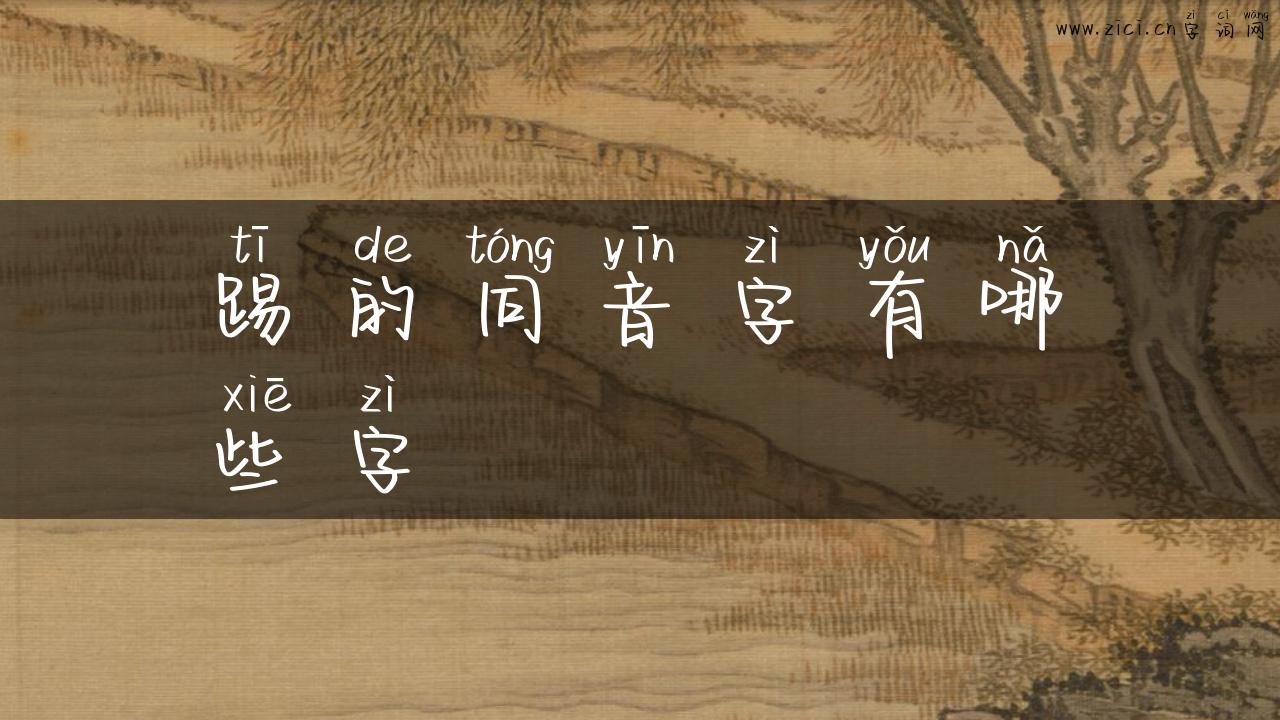 zì cí wǎng
www.zici.cn字词网
tī de tóng yīn zì yǒu nǎ
踢的同音字有哪
xiē zì
些字